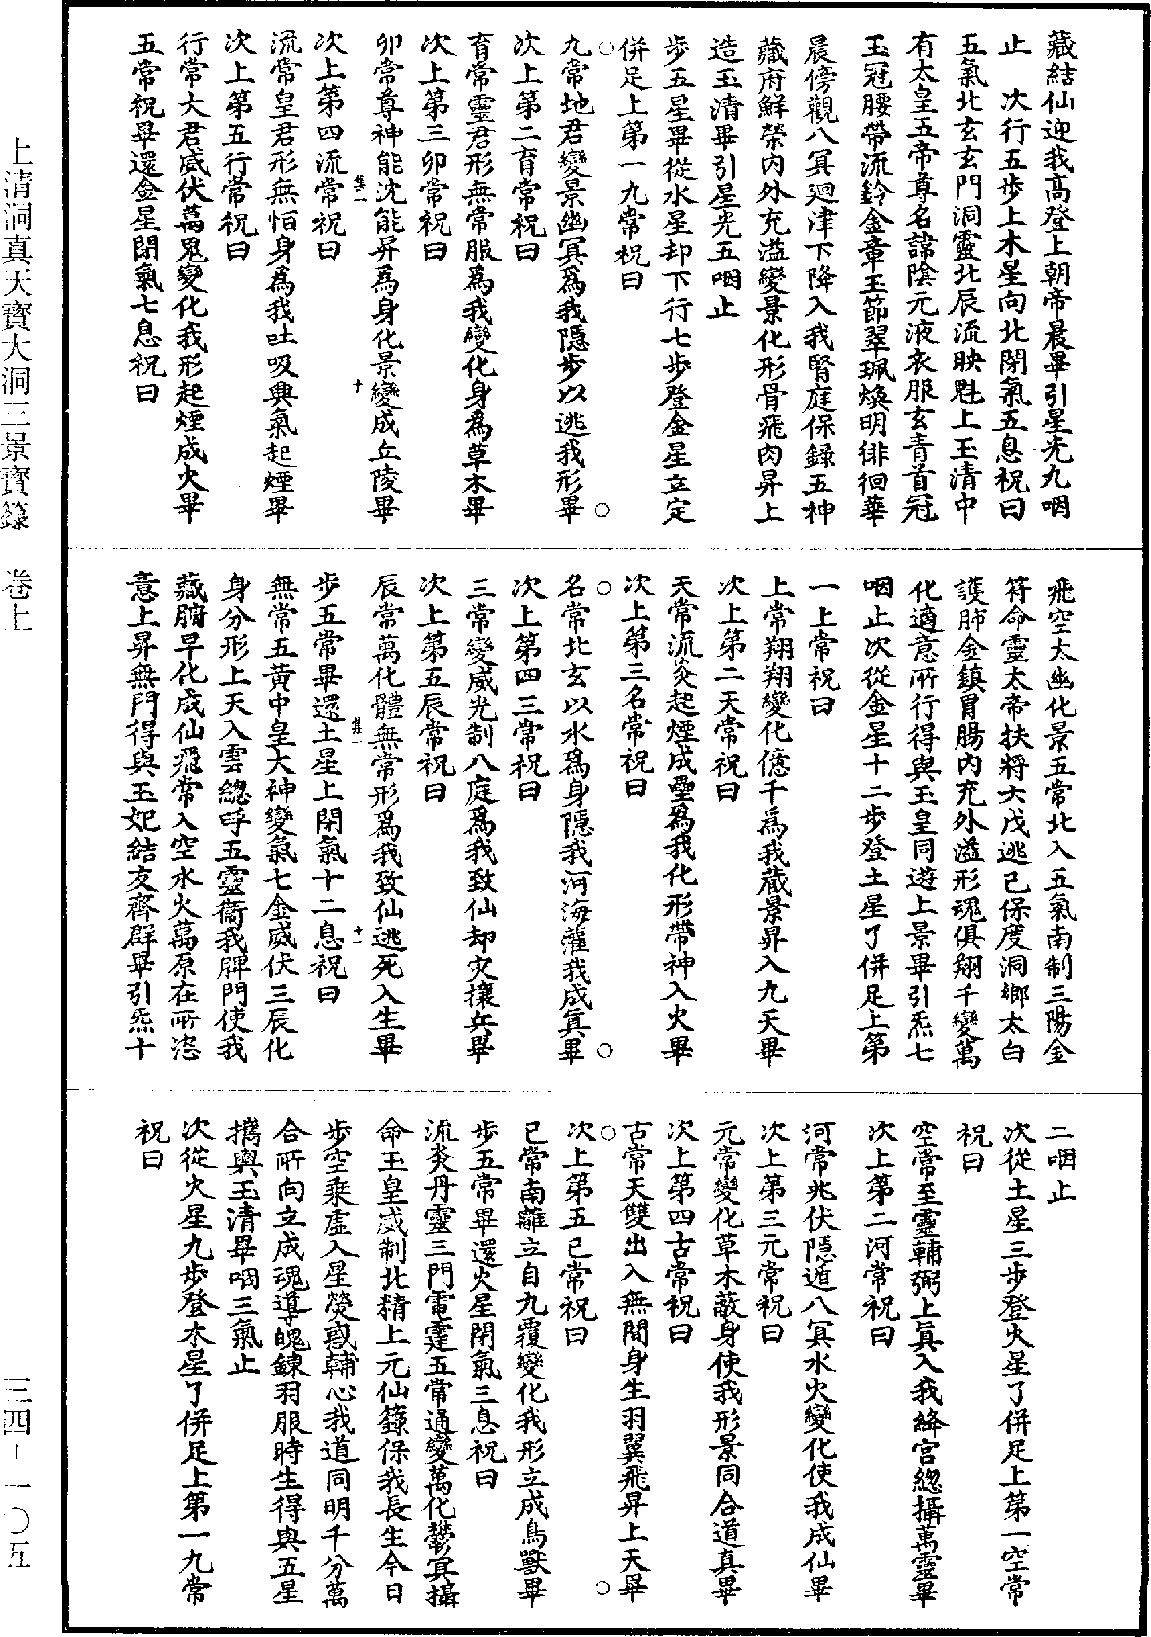 藏結仙迎我高登上朝帝晨畢引星光九咽
止　次行五步上木星向北閉氣五息祝曰
五氣北玄玄門洞靈北辰流映魁上玉清中
有太皇五帝尊名諱陰元液衣服玄青首冠
玉冠腰帶流鈴金章玉節翠珮煥明徘徊華
晨傍觀八冥廻津下降入我腎庭保錄五神
藏府鮮榮內外充溢變景化形骨飛肉昇上
造玉清畢引星光五咽止
步五星畢從水星却下行七步登金星立定
併足上第一九常祝曰
九常地君變景幽冥為我隱步以逃我形畢
次上第二育常祝曰
育常靈君形無常服為我變化身為草木畢
次上第三卯常祝曰
卯常尊神能沈能昇為身化景變成丘陵畢
次上第四流常祝曰
流常皇君形無怕身為我吐吸興氣起煙畢
次上第五行常祝曰
行常大君威伏萬鬼變化我形起煙成火畢
五常祝畢還金星閉氣七息祝曰
飛空太幽化景五常北入五氣南制三陽金
符命靈太帝扶將大戊逃已保度洞鄉太白
護肺金鎮胃腸內充外溢形魂俱翔千變萬
化適意所行得與玉皇同遊上景畢引炁七
咽止次從金星十二步登土星了併足上第
一上常祝曰
上常翔翔變化億千為我藏景昇入九天畢
次上第二天常祝曰
天常流炎起煙成壘為我化形帶神入火畢
次上第三名常祝曰
名常北玄以水為身隱我河海灌我成真畢
次上第四三常祝曰
三常變威光制八庭為我致仙却灾攘兵畢
次上第五辰常祝曰
辰常萬化體無常形為我致仙逃死入生畢
步五常畢還土星上閉氣十二息祝曰
無常五黃中皇大神變氣七金威伏三辰化
身分形上天入雲總呼五靈衛我脾門使我
藏腑早化成仙飛常入空水火萬原在所恣
意上昇無門得與玉妃結友齊群畢引炁十
二咽止
次從土星三步登火星了併足上第一空常
祝曰
空常至靈輔弼上真入我絳宮總攝萬靈畢
次上第二河常祝曰
河常兆伏隱遁八冥水火變化使我成仙畢
次上第三元常祝曰
元常變化草木蔽身使我形景同合道真畢
次上第四古常祝曰
古常天雙出入無間身生羽翼飛昇上天畢
次上第五已常祝曰
已常南離立自九覆變化我形立成鳥獸畢
步五常畢還火星閉氣三息祝曰
流炎丹靈三門電霆五常通變萬化鬱冥攝
命玉皇威制北精上元仙籙保我長生今日
步空乘虛入星熒惑輔心我道同明千分萬
合所向立成魂導魄鍊羽服時生得與五星
攜與玉清畢咽三氣止
次從火星九步登木星了併足上第一九常
祝曰
上清洞真天寶大洞三景寶籙　卷上
三四－一〇五